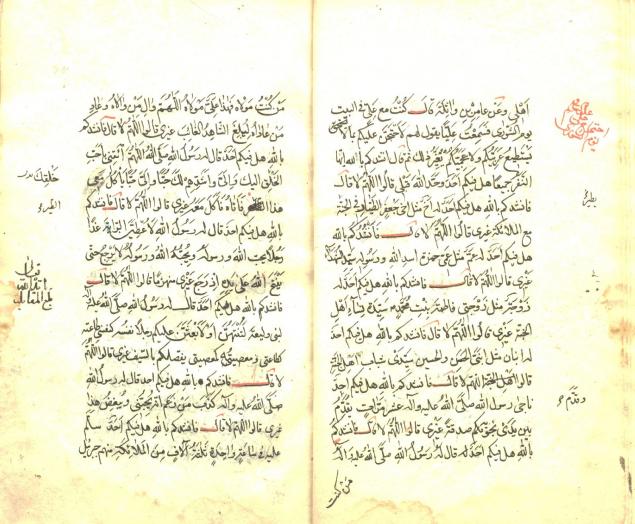 أهلي وعن عامر بن واثلة قال كنت مع علي في البيت
يوم الشورى فسمعت عليا يقول لهم لأحتجن عليكم بما لا
يستطيع عربيكم ولا عجميكم ذلك ثم قال أنشدكم بالله أيها
النفر جميعا هل فيكم أحد وحد الله قبلي قالوا اللهم لا قال
فأنشدكم بالله هل فيكم أحد له أخ مثل أخي جعفر الطيار في الجنة
مع الملائكة غيري قالوا اللهم لا قال فأنشدكم بالله
هل فيكم أحد له عم مثل عمي حمزة أسد الله وأسد رسوله سيد الشهداء
غيري قالوا اللهم لا قال فأنشدكم بالله هل فيكم أحد له
زوجة مثل زوجتي فاطمة بنت محمد سيدة نساء أهل
الجنة غيري قالوا اللهم لا قال أنشدكم بالله هل فيكم أحد
له ابنان مثل ابني الحسن والحسين سيدي شباب أهل الجنة
قالوا اللهم لا قال فأنشدكم بالله هل فيكم أحد
ناجى رسول الله صلى الله عليه وآله عشر مرات يقدم
بين يدي نجواكم صدقة غيري قالوا اللهم لا قال فأنشدكم
بالله هل فيكم أحد قال له رسول الله صلى الله عليه وآله
من كنت
وقدم
من كنت مولاه فهذا علي مولاه اللهم وال من والاه وعاد
من عاداه ليبلغ الشاهد الغائب غيري قالوا اللهم لا قال فأنشدكم
بالله هل فيكم أحد قال له رسول الله صلى الله عليه وآله اللهم ائتني بأحب
الخلق إليك وإلي وأشدهم لك حبا ولي حبا يأكل معي
هذا الطير فأتاه فأكل معه غيري قالوا اللهم لا قال فأنشدكم
بالله هل فيكم أحد قال له رسول الله لأعطين الراية غدا
رجلا يحب الله ورسوله ويحبه الله ورسوله لا يرجع حتى
يفتح الله على يديه إذ رجع غيري منهزما قالوا اللهم لا قال
فأنشدكم بالله هل فيكم أحد قال له رسول الله صلى الله عليه وآله
لبني وليعة لتنتهن أو لأبعثن عليكم رجلا نفسه كنفسي طاعته
كطاعتي ومعصيته كمعصيتي يفصلكم بالسيف غيري قالوا اللهم
لا قال فأنشدكم بالله هل فيكم أحد قال له رسول الله
صلى الله عليه وآله كذب من زعم أنه يحبني ويبغض هذا
غيري قالوا اللهم لا قال فأنشدكم بالله هل فيكم أحد سلم
عليه في ساعة واحدة ثلاثة آلاف من الملائكة منهم جبريل
خلقك
الطير